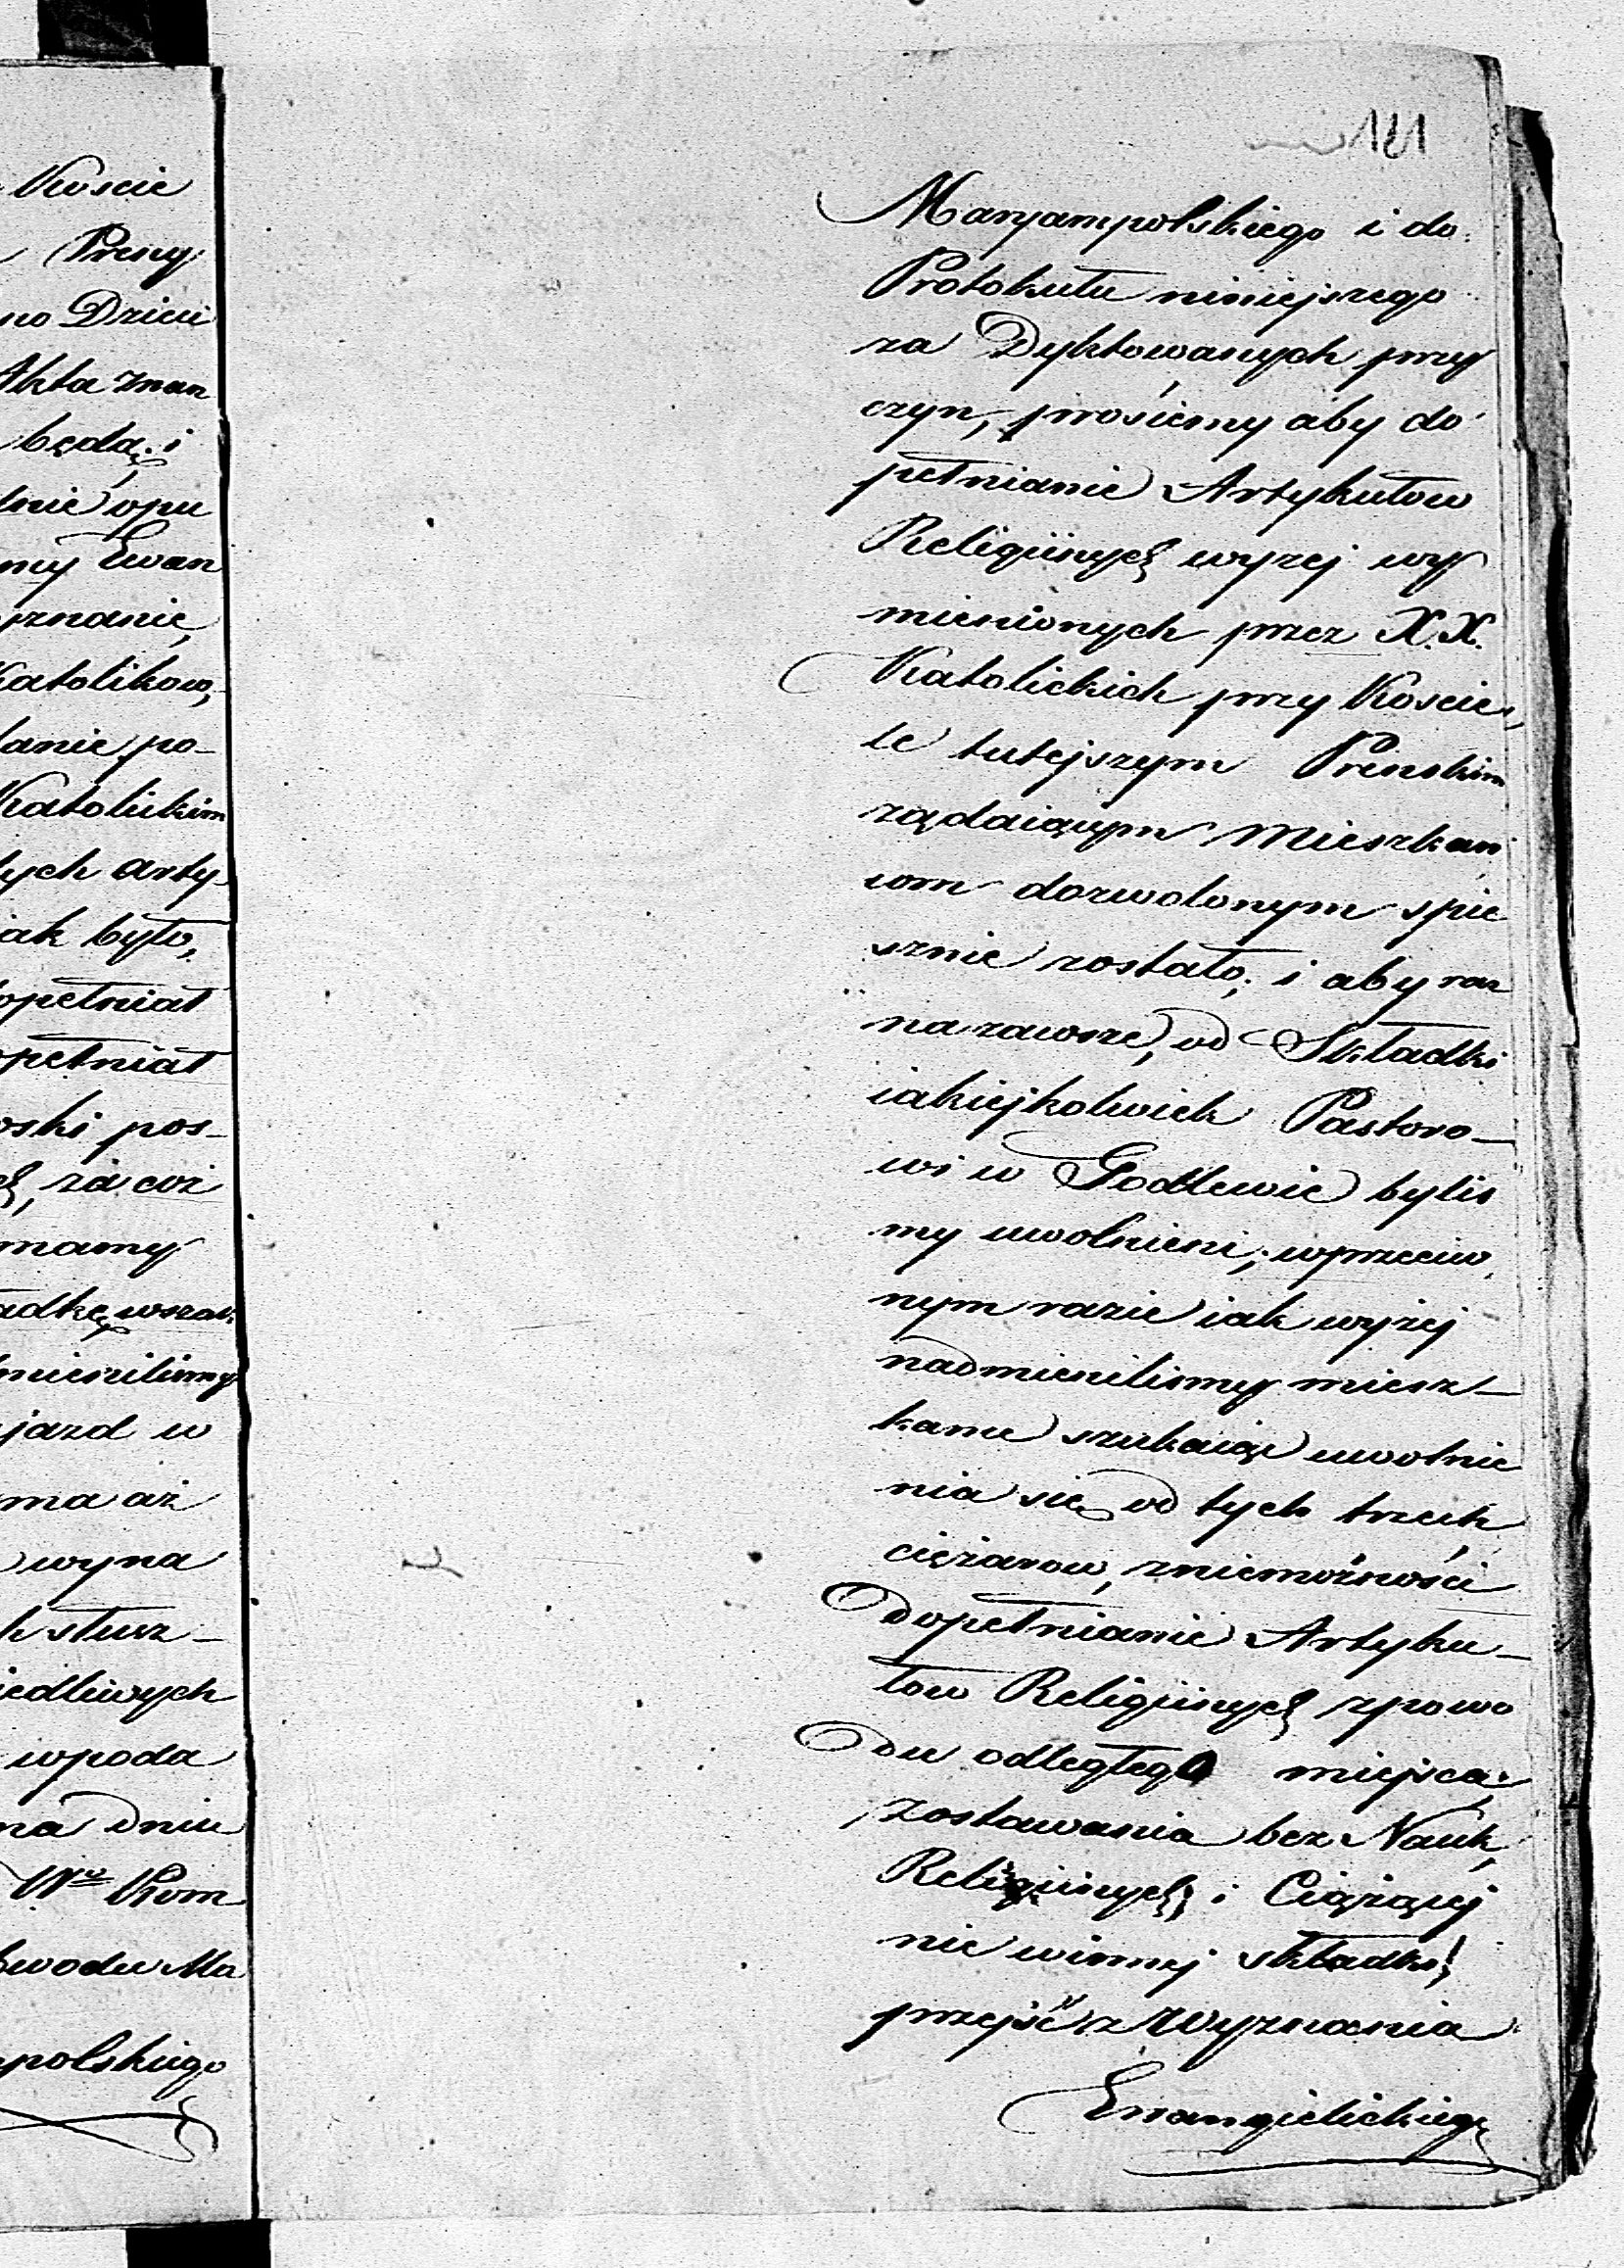 Koscie
Preny
no Dzieci
Akta znan
będą i
lnie opu
my Ewan
yznanie,
Katolikow,
danie po-
Katolickim
tych arty
iak było,
opełniał
opełniał
oski pos-
za coż
mamy
adkę wszak
mienilismy
jazd w
ma aż
wyna
h słusz-
iedliwych
wpoda
na dniu
Wo Kom
bwodu Ma
polskiego
181
Maryampolskiego i do
Protokułu niniejszego
za Dyktowanych przy
czyn, prosiemy aby do
pełnianie Artykułow
Religiinych wyzej wy
mienionych przez X.X.
Katolickich przy Koscie,
le tutejszym Prenskim
rządaiącym Mieszkań
com dozwolonym spie
sznie zostało, i aby raz
na zawsze, od Składki
iakiejkolwiek Pastoro-
wi w Godlewie bylis
my uwolnieni; wprzeciw
nym razie iak wyżej
nadmienilismy miesz-
kańcu szukaiąc uwolnie
nia się od tych trzech
ciężarow, zniemożności
Dopełnianie Artyku-
łow Religiinych zpowo
du odległego miejsca;
zostawania bez Nauk,
Religiinych; i Ciążącej
nie winnej składki;
przejść z Wyznania
Ewangielickiego